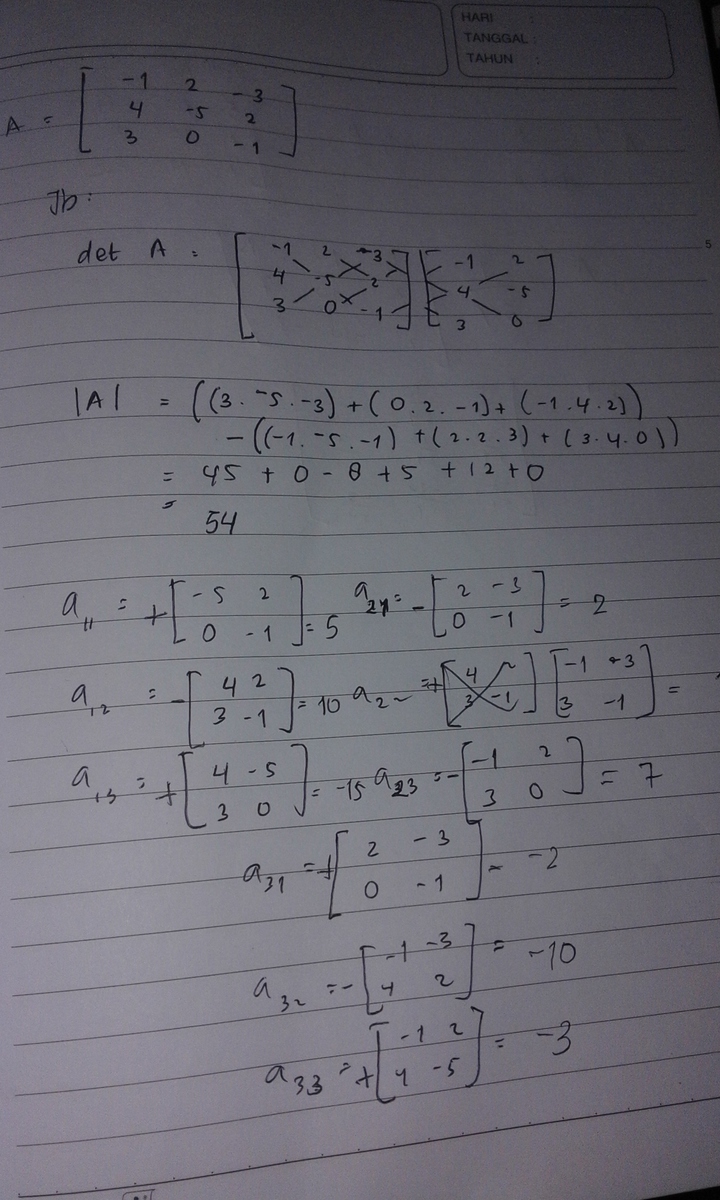 HARI :
TANGGAL :
TAHUN :
A = [ -1 2 -3
4 -5 2
3 0 -1 ]
Jb:
det A = [ -1 2 -3 ] [ -1 2 ]
4 -5 2 4 -5
3 0 -1 3 0
|A| = ((3 . -5 . -3) + (0 . 2 . -1) + (-1 . 4 . 2))
- ((-1 . -5 . -1) + (2 . 2 . 3) + (3 . 4 . 0))
= 45 + 0 - 8 + 5 + 12 + 0
= 54
a11 = + [ -5 2 a21 = - [ 2 -3
0 -1 ] = 5 0 -1 ] = 2
a12 = - [ 4 2 a22 = + [ -1 -3
3 -1 ] = 10 3 -1 ] =
a13 = + [ 4 -5 a23 = - [ -1 2
3 0 ] = -15 3 0 ] = 7
a31 = + [ 2 -3
0 -1 ] = -2
a32 = - [ -1 -3
4 2 ] = -10
a33 = + [ -1 2
4 -5 ] = -3
5